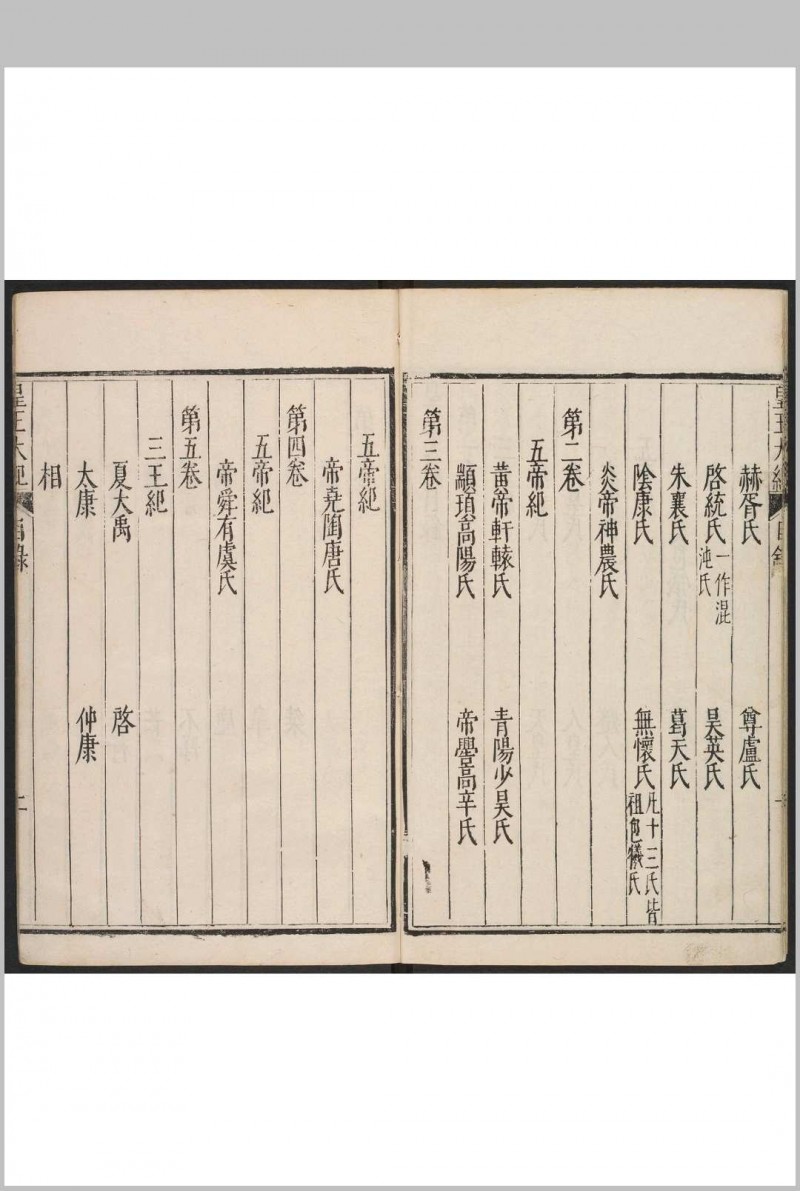 皇王大紀 目錄 一
赫胥氏 尊盧氏
啓統氏 一作混沌氏 昊英氏
朱襄氏 葛天氏
陰康氏 無懷氏 凡十三氏皆祖包犧氏
炎帝神農氏
第二卷
五帝紀
黃帝軒轅氏 青陽少昊氏
顓頊高陽氏 帝嚳高辛氏
第三卷
五帝紀
帝堯陶唐氏
第四卷
五帝紀
帝舜有虞氏
第五卷
三王紀
夏大禹 啓
太康 仲康
相
皇王大紀 目錄 二